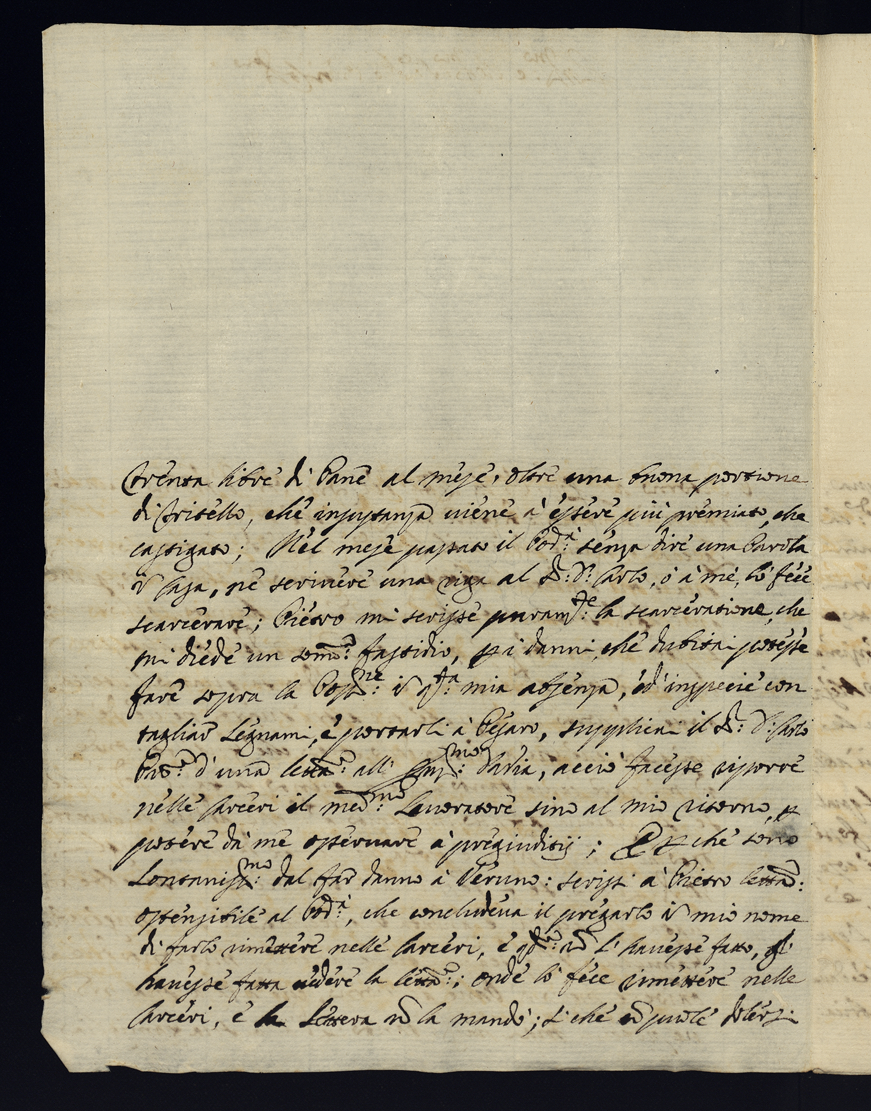 trenta libre di Pane al mese, oltre una buona portione
di tritello, che in sustanza viene à essere più premiato, che
castigato; Nel mese passato il Pod:à senza dire una Parola
in Casa, ne scrivere una riga al S:r D: Carlo, ò à me, lo fece
scarcerare; Pietro mi scrisse puram:te la scarceratione, che
mi diede un som:o fastidio, p i danni, che dubitai potesse
fare sopra la Poss:ne in q:ta mia absenza, ed' in specie con
tagliar Legnami, e portarli à Pesaro, supplicai il S:r D: Carlo
Pad:e d'una lettã: all' Ill:mo Paria, acciò facesse riporre
nelle Carceri il med:mo Lavoratore sino al mio ritorno, p
potere da me osservare i pregiuditij; E p che sono
Lontaniss:mo dal far danno à Veruno: scrissi à Pietro lettã:
ostensibile al Pod:à, che concludeva il pregarlo in mio nome
di farlo rimettere nelle Carceri, e q:do nõ l'havesse fatto, gli
havesse fatta vedere la lettã:; onde lo fece rimettere nelle
Carceri, e la lettera nõ la mandò; si che nõ puole dolersi